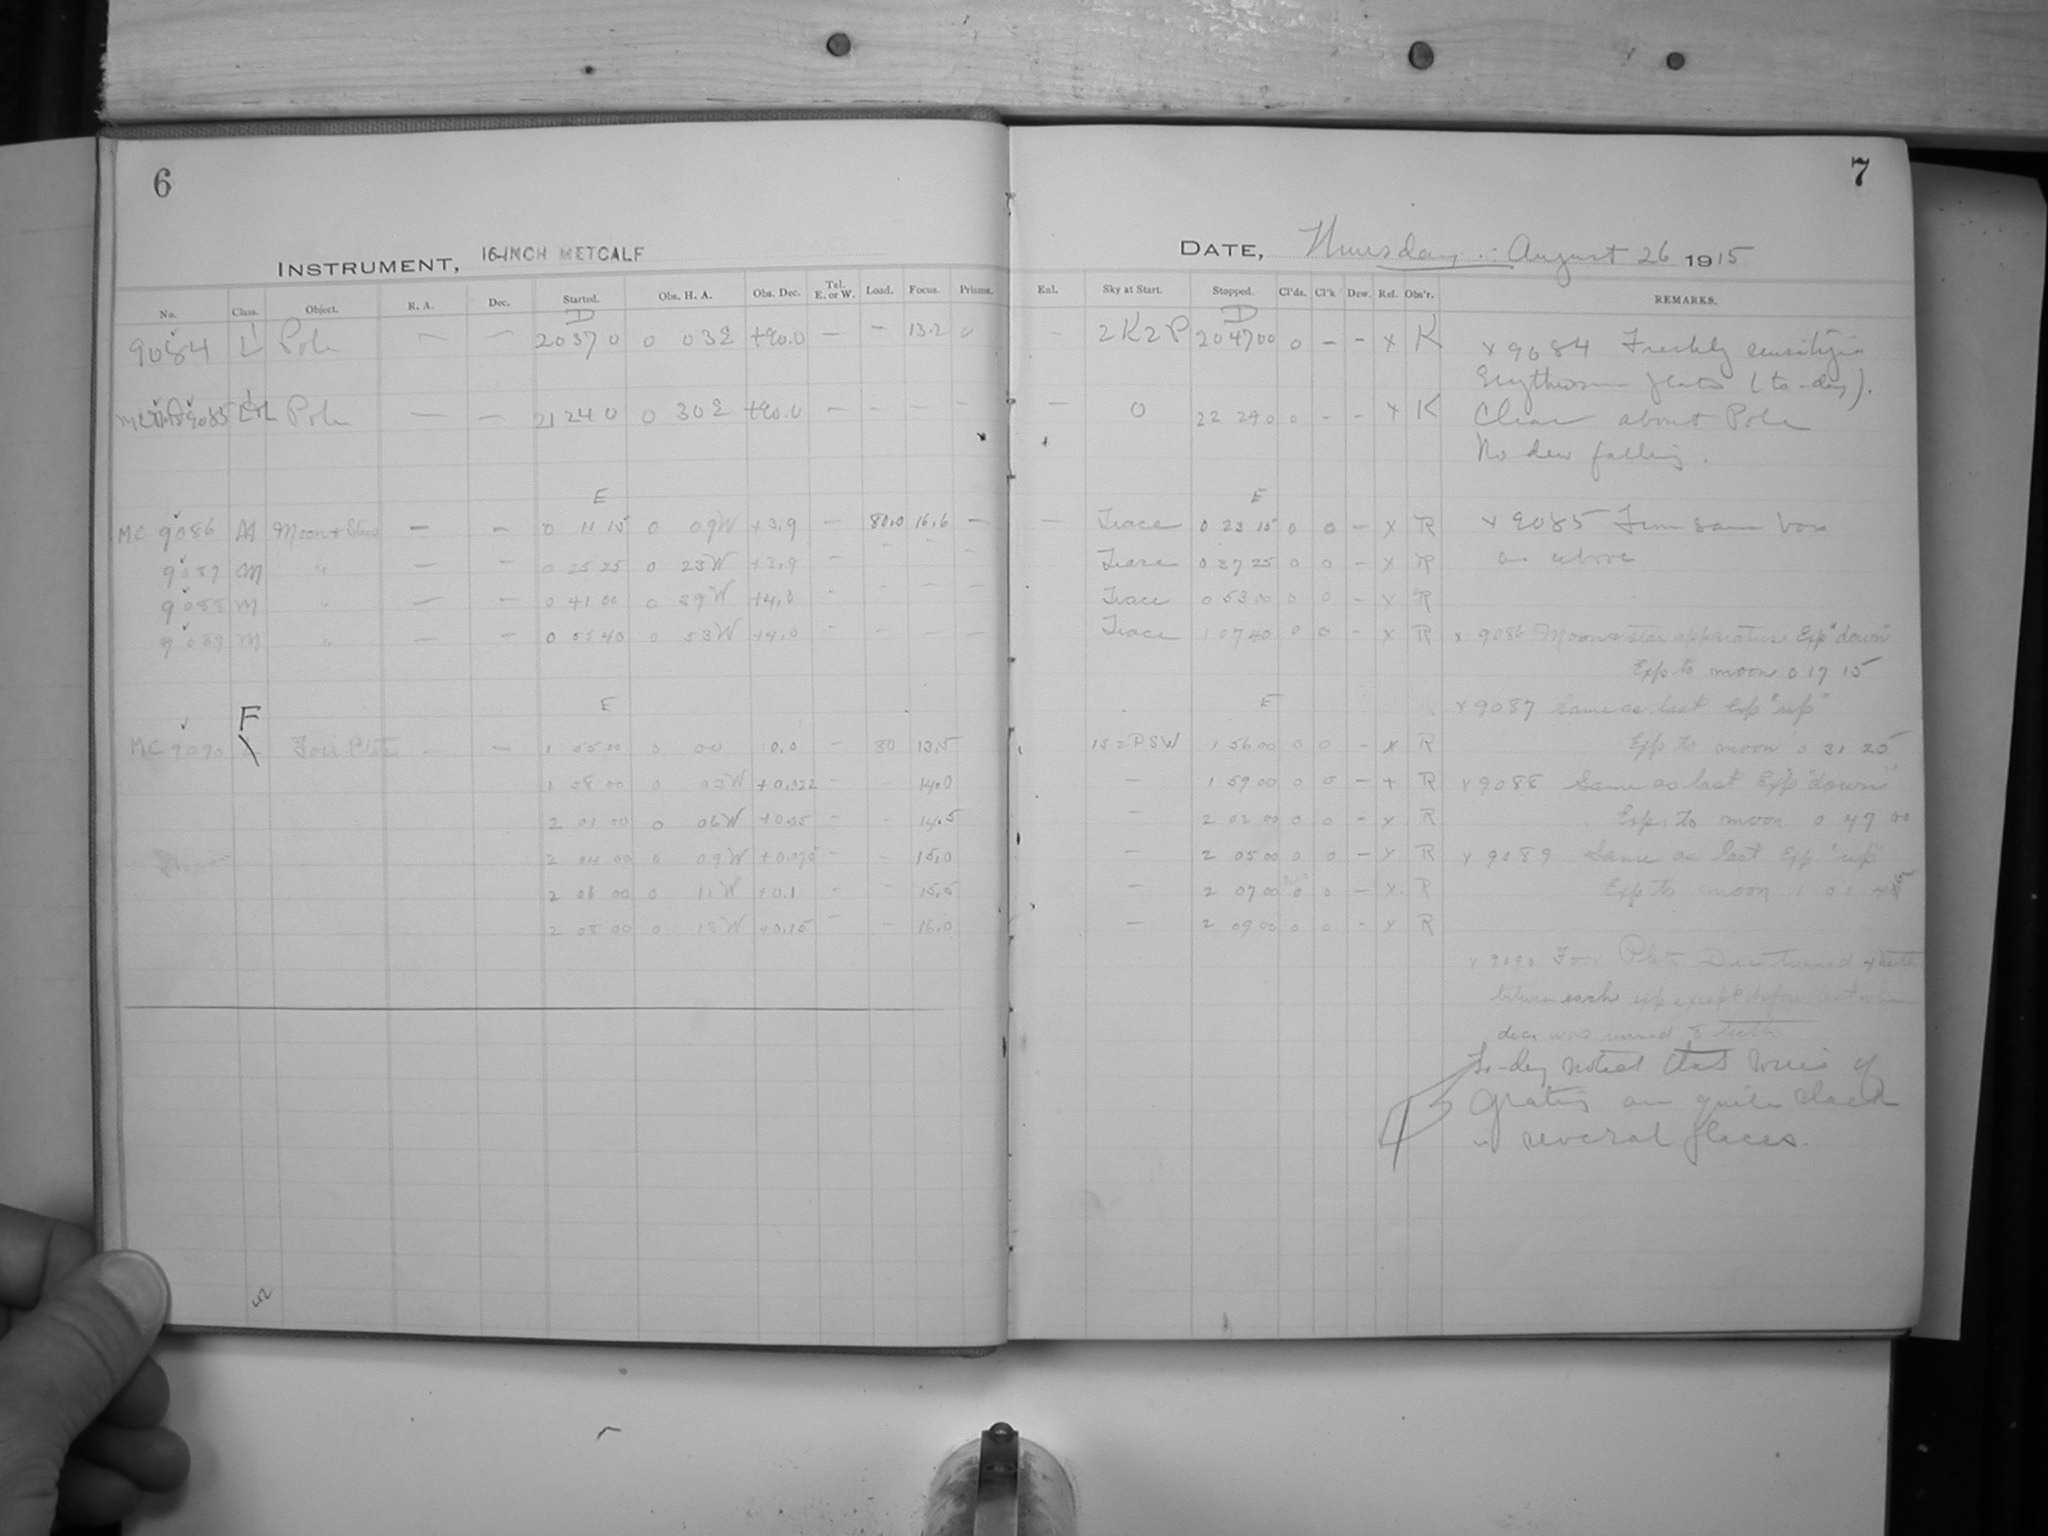 6
INSTRUMENT, 16-INCH METCALF
No. Class. Object. R. A. Dec. Started. Obs. H. A. Obs. Dec. Tel. E. or W. Load. Focus. Prisms.
D
9084 L Pole — — 20 37 0 0 03 E +90.0 — — 13.2 0
9085 L Pole — — 21 24 0 0 30 E +90.0 — — — —
E
MC 9086 M Moon + Stars — — 0 11 15 0 09 W +3.9 — 80.0 16.6 —
9087 M " — — 0 25 25 0 23 W +3.9 — — — —
9088 M " — — 0 41 00 0 39 W +4.0 — — — —
9089 M " — — 0 55 40 0 53 W +4.0 — — — —
E
F
MC 9090 Foci Plate — — 1 55 00 0 00 0.0 — 80 13.5
1 58 00 0 03 W +0.022 — — 14.0
2 01 00 0 06 W +0.05 — — 14.5
2 04 00 0 09 W +0.075 — — 15.0
2 06 00 0 11 W +0.1 — — 15.5
2 08 00 0 13 W +0.15 — — 16.0
7
DATE, Thursday August 26 1915
Enl. Sky at Start. Stopped. Cl'ds. Cl'k Dew. Ref. Obs'r. REMARKS.
D
— 2K2P 20 47 00 0 — — x K
— 0 22 29 0 0 — — x K
E
— Trace 0 23 15 0 0 — x R
Trace 0 37 25 0 0 — x R
Trace 0 53 00 0 0 — x R
Trace 1 07 40 0 0 — x R
E
1 56 00 0 0 — x R
— 1 59 00 0 0 — + R
— 2 02 00 0 0 — x R
— 2 05 00 0 0 — x R
— 2 07 00 0 0 — x R
— 2 09 00 0 0 — x R
x 9084 Freshly
Erythrosin plate (to-day).
Clear about Pole
No dew falling.
x 9085 From same box
as above
x 9086 Moon & star apparatus Exp "down"
Exp to moon 0 17 15
x 9087 Same as last Exp "up"
Exp to moon 0 31 25
x 9088 Same as last Exp "down"
Exp. to moon 0 47 00
x 9089 Same as last Exp "up"
Exp to moon 1 01
x 9090 Foci Plate Dec turned
between each exp except before last when
dec. was turned teeth
To-day noted that wires of
Grating are quite slack
in several places.